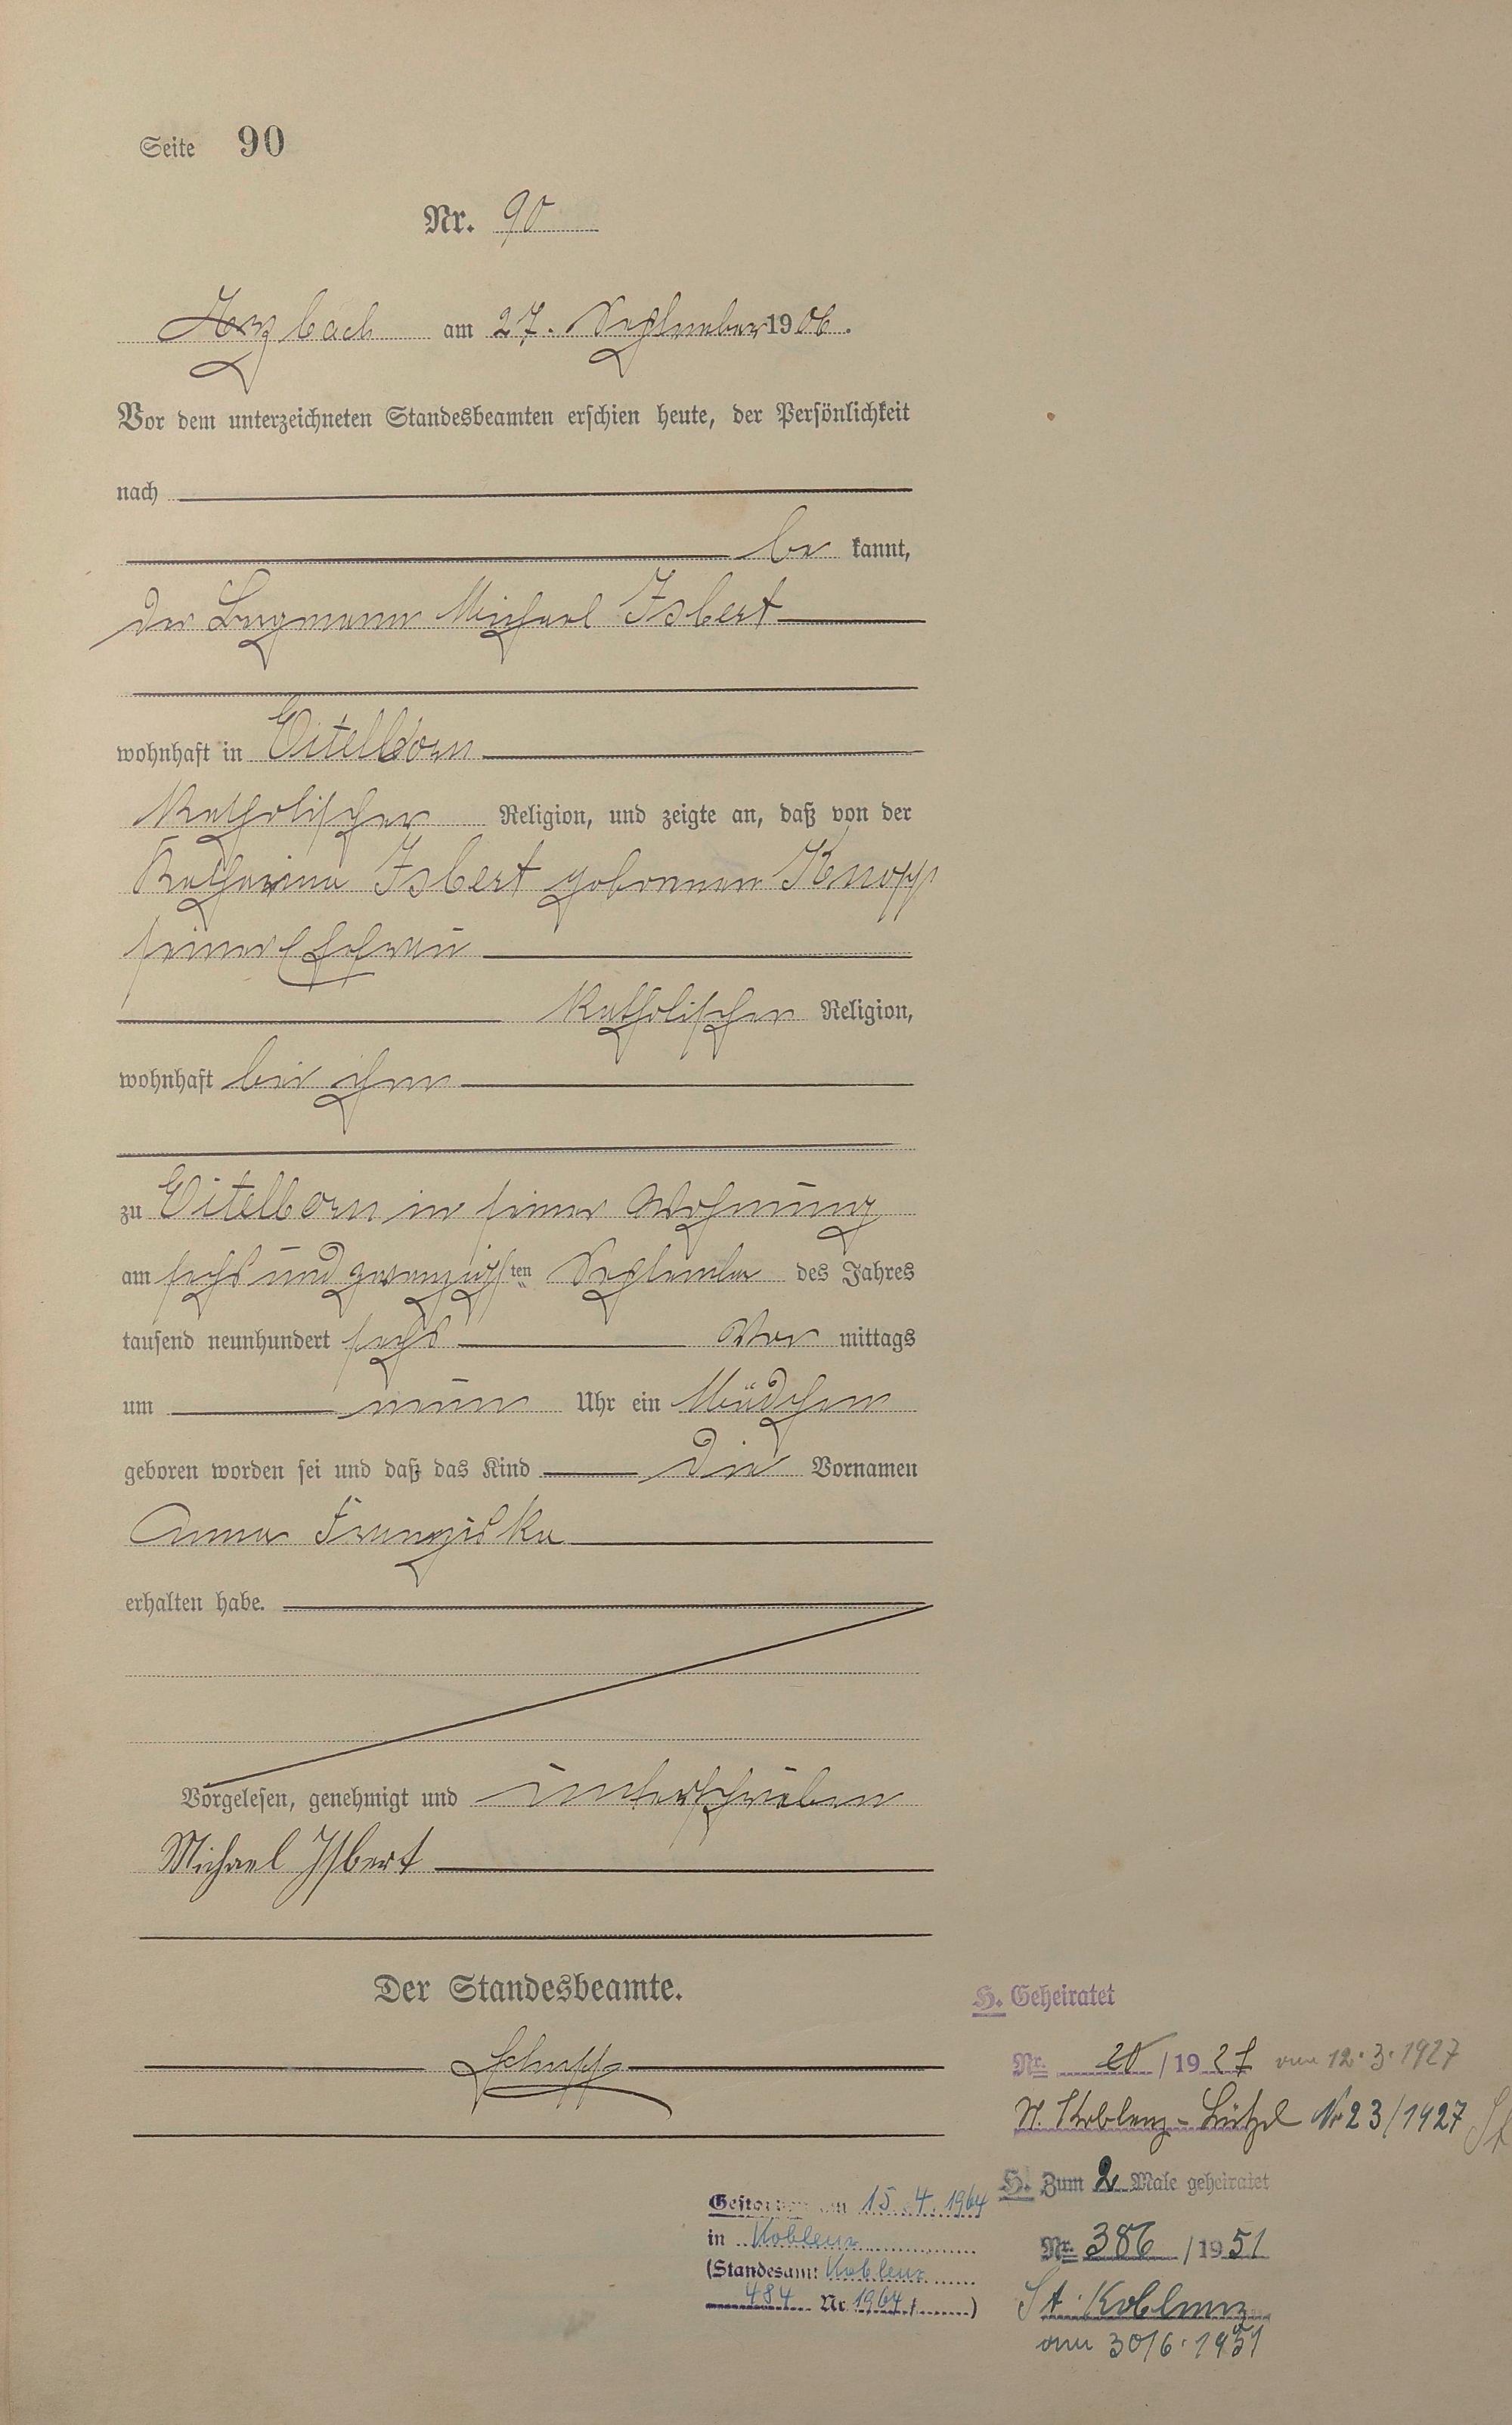 Seite 90
Nr. 90
bach am 27. September 1906.
Vor dem unterzeichneten Standesbeamten erschien heute, der Persönlichkeit
nach
be kannt,
der Bergmann Michael Isbert
wohnhaft in Eitelborn
katholischer Religion, und zeigte an, daß von der
Katharina Isbert geborenen Knopp
seiner Ehefrau
katholischer Religion,
wohnhaft bei ihm
zu Eitelborn in seiner Wohnung
am sechs und zwanzigsten September des Jahres
tausend neunhundert sechs Vor mittags
um neun Uhr ein Mädchen
geboren worden sei und daß das Kind die Vornamen
Anna Franziska
erhalten habe.
Vorgelesen, genehmigt und unterschrieben
Michael Isbert
Der Standesbeamte.
Schupp
H. Geheiratet
Nr. 20/1927 am 12.3.1927
St. Koblenz-Lützel Nr 23/1927
H. Zum 2. Male geheiratet
Nr. 386/1951
St. Koblenz
am 30/6.1951
Gestorben am 15.4.1964
in Koblenz
(Standesamt Koblenz
484 Nr. 1964)